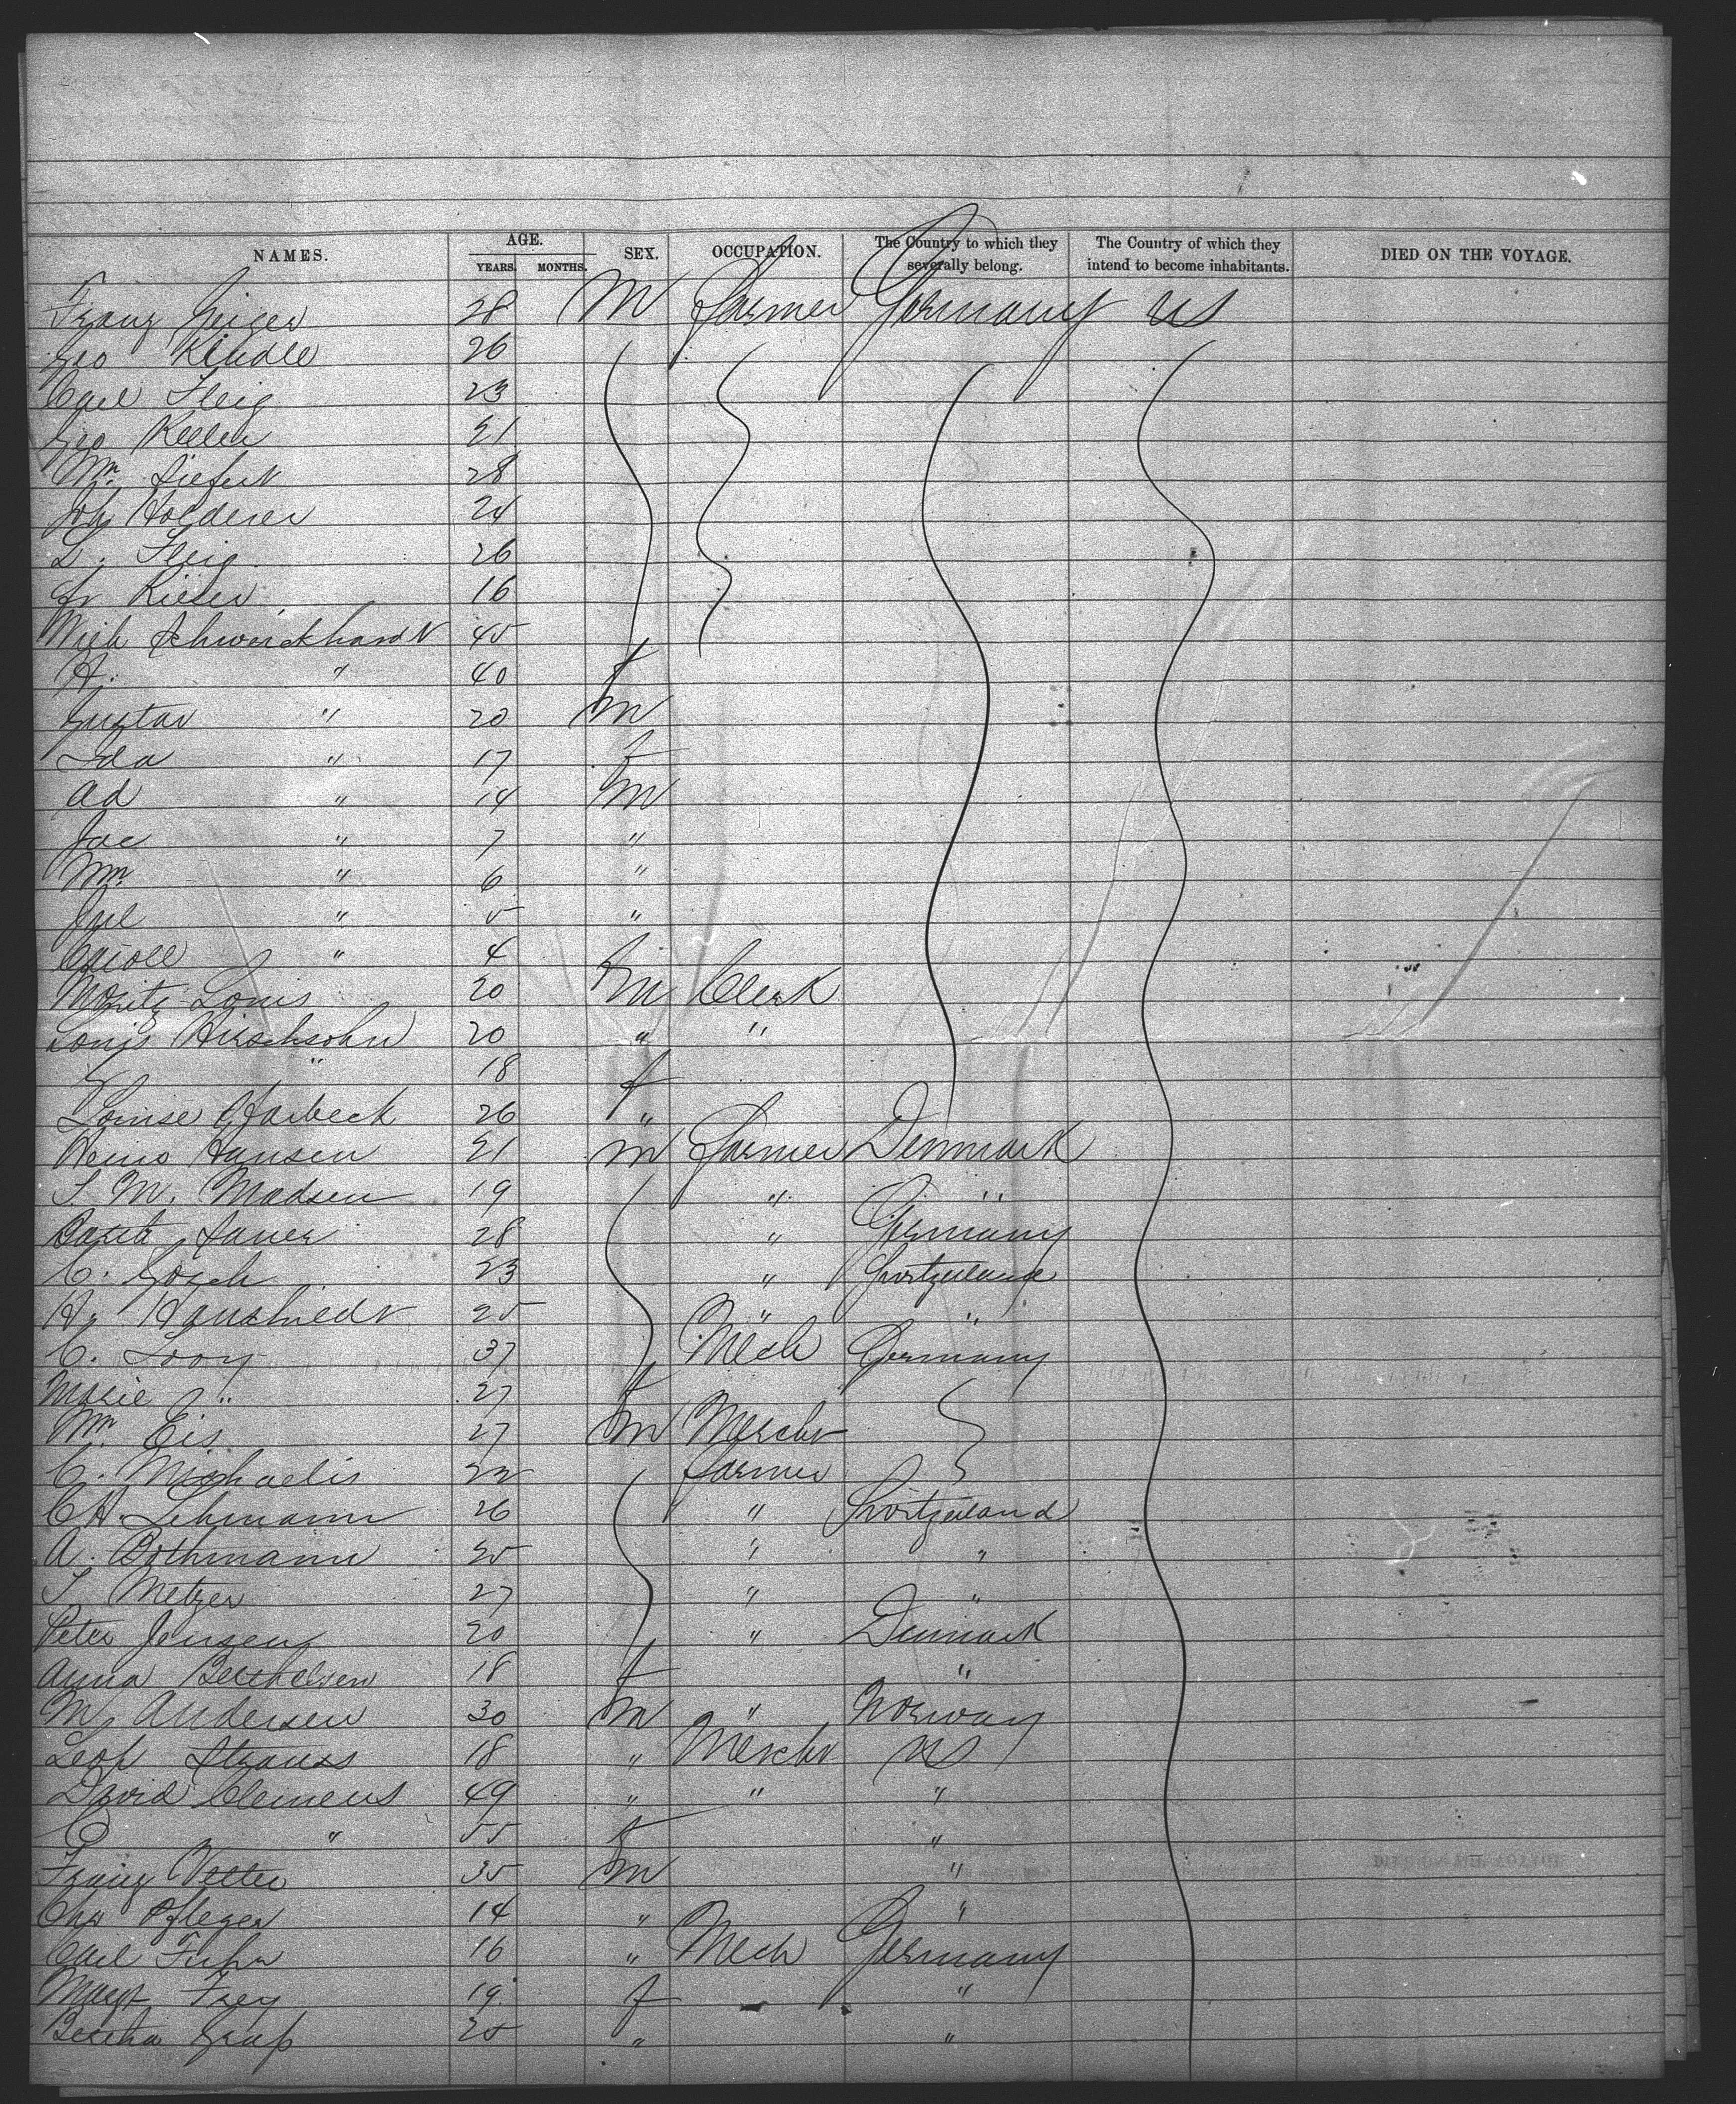 NAMES. AGE. YEARS. MONTHS. SEX. OCCUPATION. The Country to which they severally belong. The Country of which they intend to become inhabitants. DIED ON THE VOYAGE.
Franz Geiger 28 M Farmer Germany US
Geo Kindle 26
Carl Fleig 23
Geo Keller 21
Wm. Siefert 28
Joh Holderer 24
L. Fleig 26
Fr Rieser 16
Mich Schweickhardt 45
H. " 40 f
Gustav " 20 M
Ida " 17 f
Ad " 14 M
Jac " 7 "
Wm. " 6 "
Jul " 5 "
" 4
Moritz Louis 20 M Clerk
Louis Hirschsohn 20 " "
" 18 f
Louise Harbeck 26 "
Hansen 21 M Farmer Denmark
M. Madsen 19 " "
Sauer 28 " Germany
C. Gosch 23 " Switzerland
H. 25 " "
C. Looy 37 Mech Germany
Marie " 27 f
Wm. Eis 27 M Mercht
C. Michaelis 22 Farmer
C H. Lehmann 26 " Switzerland
A. Bothmann 25 " "
Metzer 27 " "
Peter Jensen 20 " Denmark
Anna Berthelsen 18 f "
M. Andersen 30 M " Norway
Leop Strauss 18 " Mercht US
David Clemens 49 " " "
C " 55 f "
Franz Vetter 35 M "
Chs Pfleger 14 " "
Carl Fuhr 16 " Mech Germany
Margt Frey 19 f "
Bertha Graf 25 " "